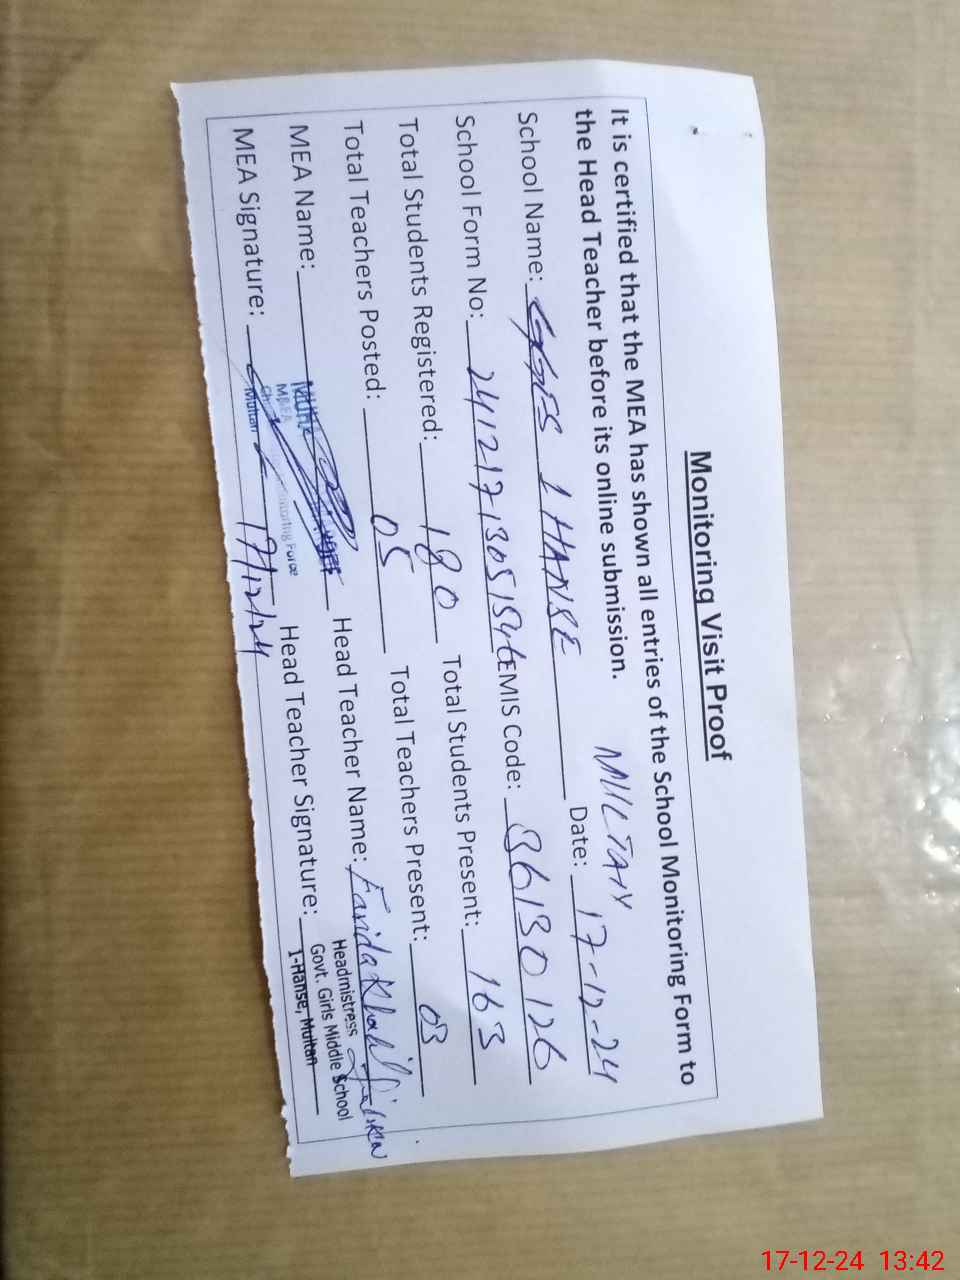 Monitoring Visit Proof
It is certified that the MEA has shown all entries of the School Monitoring Form to
the Head Teacher before its online submission.
School Name: 1 HANSE Date: 17-12-24
School Form No: EMIS Code: 36130126
Total Students Registered: 180 Total Students Present: 163
Total Teachers Posted: 05 Total Teachers Present: 03
MEA Name: Head Teacher Name: Farida
MEA Signature: 17/12/24 Head Teacher Signature:
Multan
Headmistress
Govt. Girls Middle School
1-Hanse, Multan
17-12-24 13:42